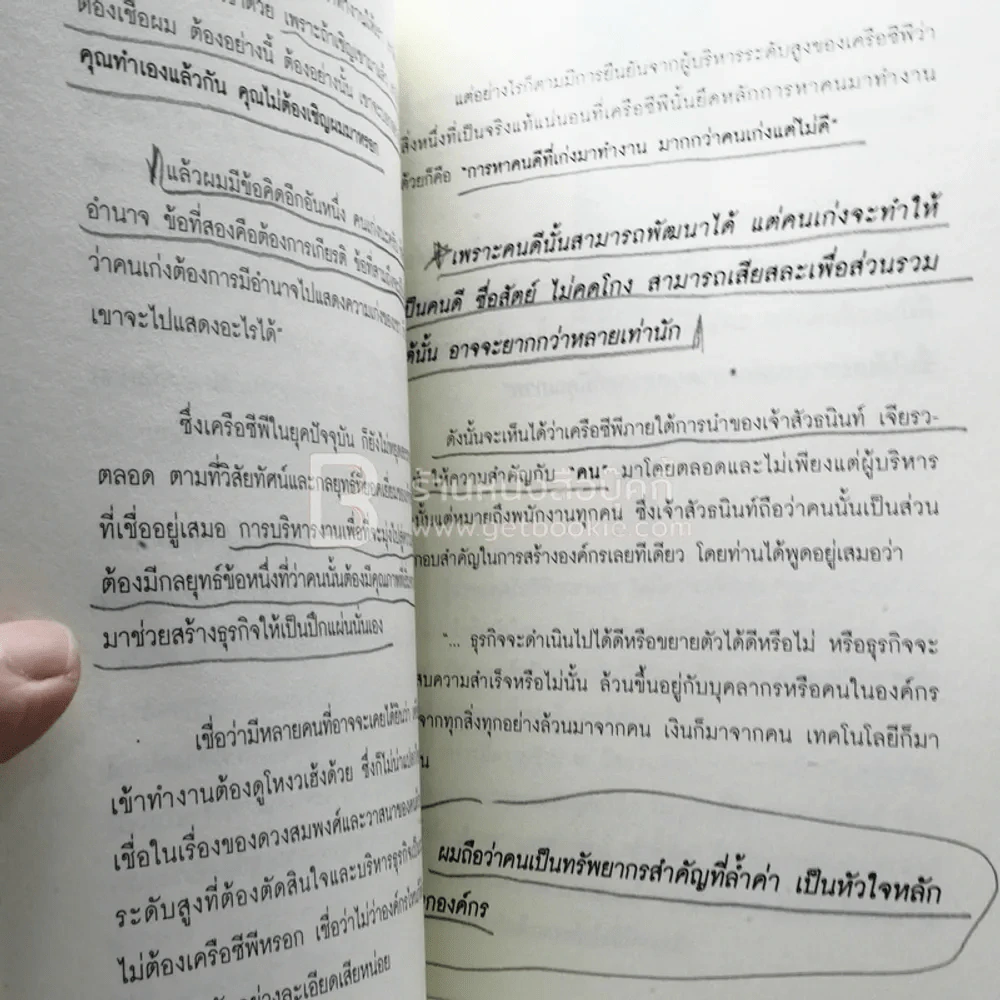 ด้วย เพราะถ้าเชิญเขามาแล้ว
ต้องเชื่อผม ต้องอย่างนี้ ต้องอย่างนั้น
คุณทำเองแล้วกัน คุณไม่ต้องเชิญผมมาหรอก
แล้วผมมีข้อคิดอีกอันหนึ่ง คนเก่ง
อำนาจ ข้อที่สองคือต้องการเกียรติ
ว่าคนเก่งต้องการมีอำนาจไปแสดงความเก่งของเขา
เขาจะไปแสดงอะไรได้"
ซึ่งเครือซีพีในยุคปัจจุบัน ก็ยังไม่หยุด
ตลอด ตามที่วิสัยทัศน์และกลยุทธ์ที่ยอดเยี่ยม
ที่เชื่ออยู่เสมอ การบริหารงานเพื่อที่จะมุ่งไปสู่
ต้องมีกลยุทธ์ข้อหนึ่งที่ว่าคนนั้นต้องมีคุณภาพ
มาช่วยสร้างธุรกิจให้เป็นปึกแผ่นนั่นเอง
เชื่อว่ามีหลายคนที่อาจจะเคยได้ยินว่า
เข้าทำงานต้องดูโหงวเฮ้งด้วย ซึ่งก็ไม่น่า
เชื่อในเรื่องของดวงสมพงศ์และวาสนาของคน
ระดับสูงที่ต้องตัดสินใจและบริหารธุรกิจ
ไม่ต้องเครือซีพีหรอก เชื่อว่าไม่ว่าองค์กรไหน
อย่างละเอียดเสียหน่อย
แต่อย่างไรก็ตามมีการยืนยันจากผู้บริหารระดับสูงของเครือซีพีว่า
สิ่งหนึ่งที่เป็นจริงแท้แน่นอนที่เครือซีพีนั้นยึดหลักการหาคนมาทำงาน
ด้วยก็คือ "การหาคนดีที่เก่งมาทำงาน มากกว่าคนเก่งแต่ไม่ดี"
เพราะคนดีนั้นสามารถพัฒนาได้ แต่คนเก่งจะทำให้
เป็นคนดี ซื่อสัตย์ ไม่คดโกง สามารถเสียสละเพื่อส่วนรวม
ได้นั้น อาจจะยากกว่าหลายเท่านัก
ดังนั้นจะเห็นได้ว่าเครือซีพีภายใต้การนำของเจ้าสัวธนินท์ เจียรว-
ให้ความสำคัญกับ "คน" มาโดยตลอดและไม่เพียงแต่ผู้บริหาร
นั้นแต่หมายถึงพนักงานทุกคน ซึ่งเจ้าสัวธนินท์ถือว่าคนนั้นเป็นส่วน
กอบสำคัญในการสร้างองค์กรเลยทีเดียว โดยท่านได้พูดอยู่เสมอว่า
"... ธุรกิจจะดำเนินไปได้ดีหรือขยายตัวได้ดีหรือไม่ หรือธุรกิจจะ
สบความสำเร็จหรือไม่นั้น ล้วนขึ้นอยู่กับบุคลากรหรือคนในองค์กร
จากทุกสิ่งทุกอย่างล้วนมาจากคน เงินก็มาจากคน เทคโนโลยีก็มา
น
ผมถือว่าคนเป็นทรัพยากรสำคัญที่ล้ำค่า เป็นหัวใจหลัก
องค์กร
ร้านหนังสือบุ๊คกี้
www.getbookie.com